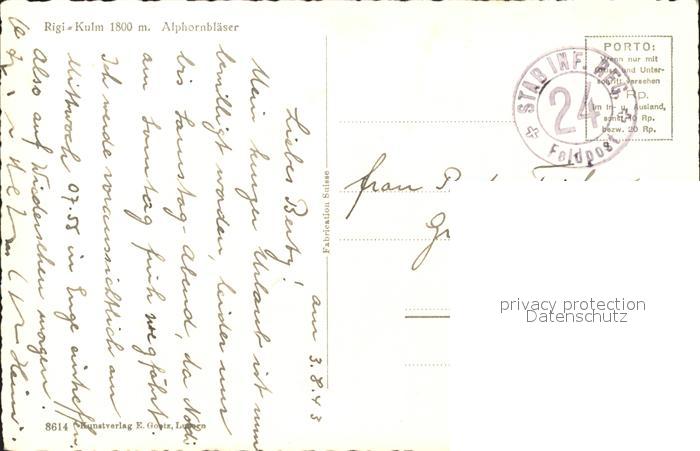 Rigi-Kulm 1800 m. Alphornbläser
PORTO:
Wenn nur mit
Gruss und Unter-
schrift versehen
Rp.
im In- u. Ausland,
sonst 10 Rp.
bezw. 20 Rp.
STAB INF. REG.
24
Feldpost
Fabrication Suisse
am 3.8.43
Liebes Berty!
Mein kurzer Urlaub ist nun
bewilligt worden, leider nur
bis Samstag-Abend, da
am Sonntag früh wegfährt.
Ich werde voraussichtlich am
Mittwoch 07.55 in Enge eintreffen.
Also auf Wiedersehen morgen!
Heini.
Frau
8614 Kunstverlag E. Goetz, Luzern
privacy protection
Datenschutz